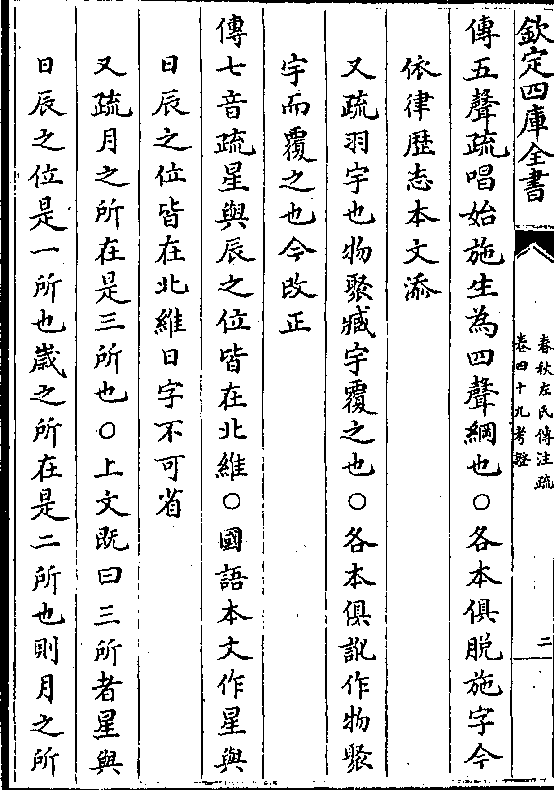 欽定四庫全書
春秋左氏傳注疏
卷四十九考證
二
傳五聲疏唱始施生為四聲綱也○各本俱脫施字今
依律歷志本文添
又疏羽宇也物聚臧宇覆之也○各本俱訛作物聚
宇而覆之也今改正
傳七音疏星與辰之位皆在北維○國語本文作星與
日辰之位皆在北維日字不可省
又疏月之所在是三所也○上文既曰三所者星與
日辰之位是一所也歲之所在是二所也則月之所